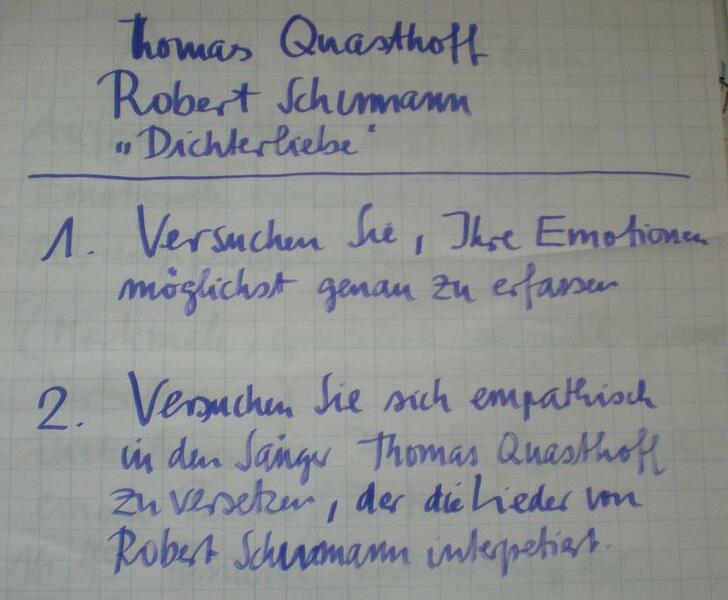 Thomas Quasthoff
Robert Schumann
„Dichterliebe“
1. Versuchen Sie, Ihre Emotionen
möglichst genau zu erfassen
2. Versuchen Sie sich empathisch
in den Sänger Thomas Quasthoff
zu versetzen, der die Lieder von
Robert Schumann interpretiert.